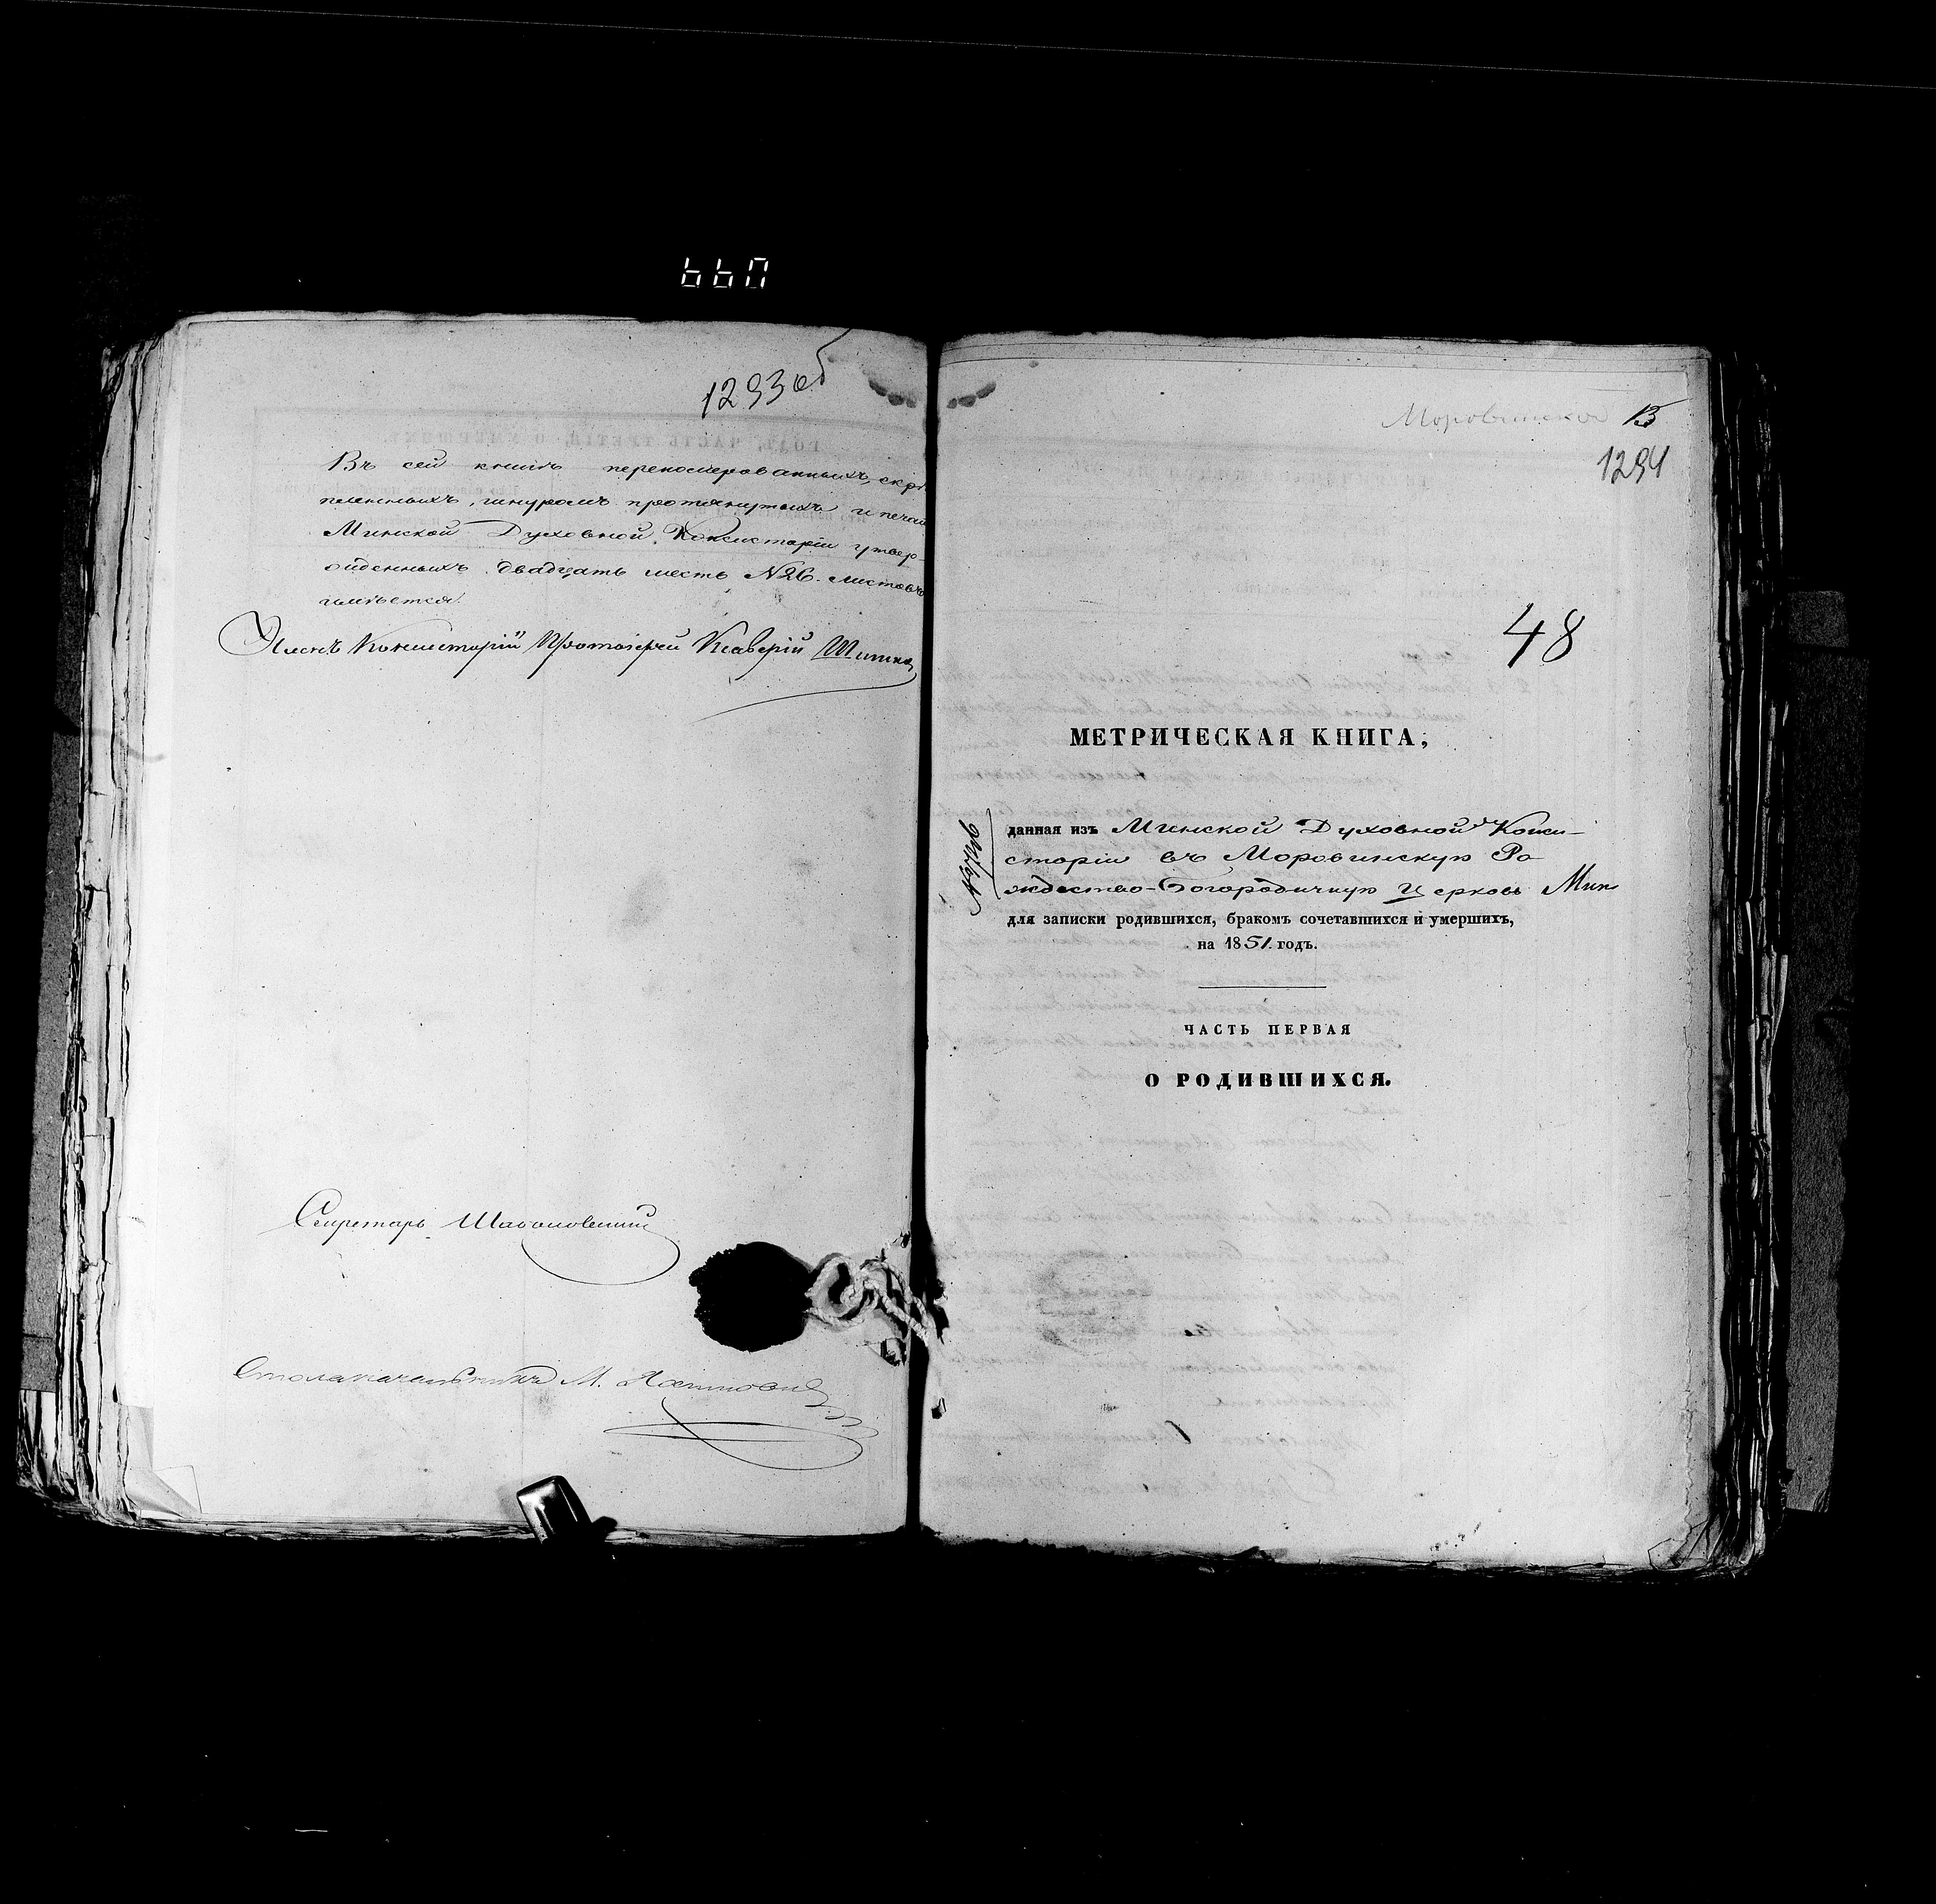 660
1293 об
Въ сей книгѣ перенумерованныхъ, скрѣ
пленныхъ, шнуромъ протянутыхъ и печа
Минской Духовной Консисторіи утвер-
жденныхъ двадцать шесть №26. листовъ
имѣется.
Членъ Консисторіи Протоіерей Ксаверій
Секретарь
Столоначальникъ М.
13
1294
48
МЕТРИЧЕСКАЯ КНИГА,
данная изъ Минской Духовной Конси-
сторіи въ Моровинскую Ро-
ждество-Богородичную Церковь Мин
для записки родившихся, бракомъ сочетавшихся и умершихъ,
на 1851. годъ.
ЧАСТЬ ПЕРВАЯ
О РОДИВШИХСЯ.